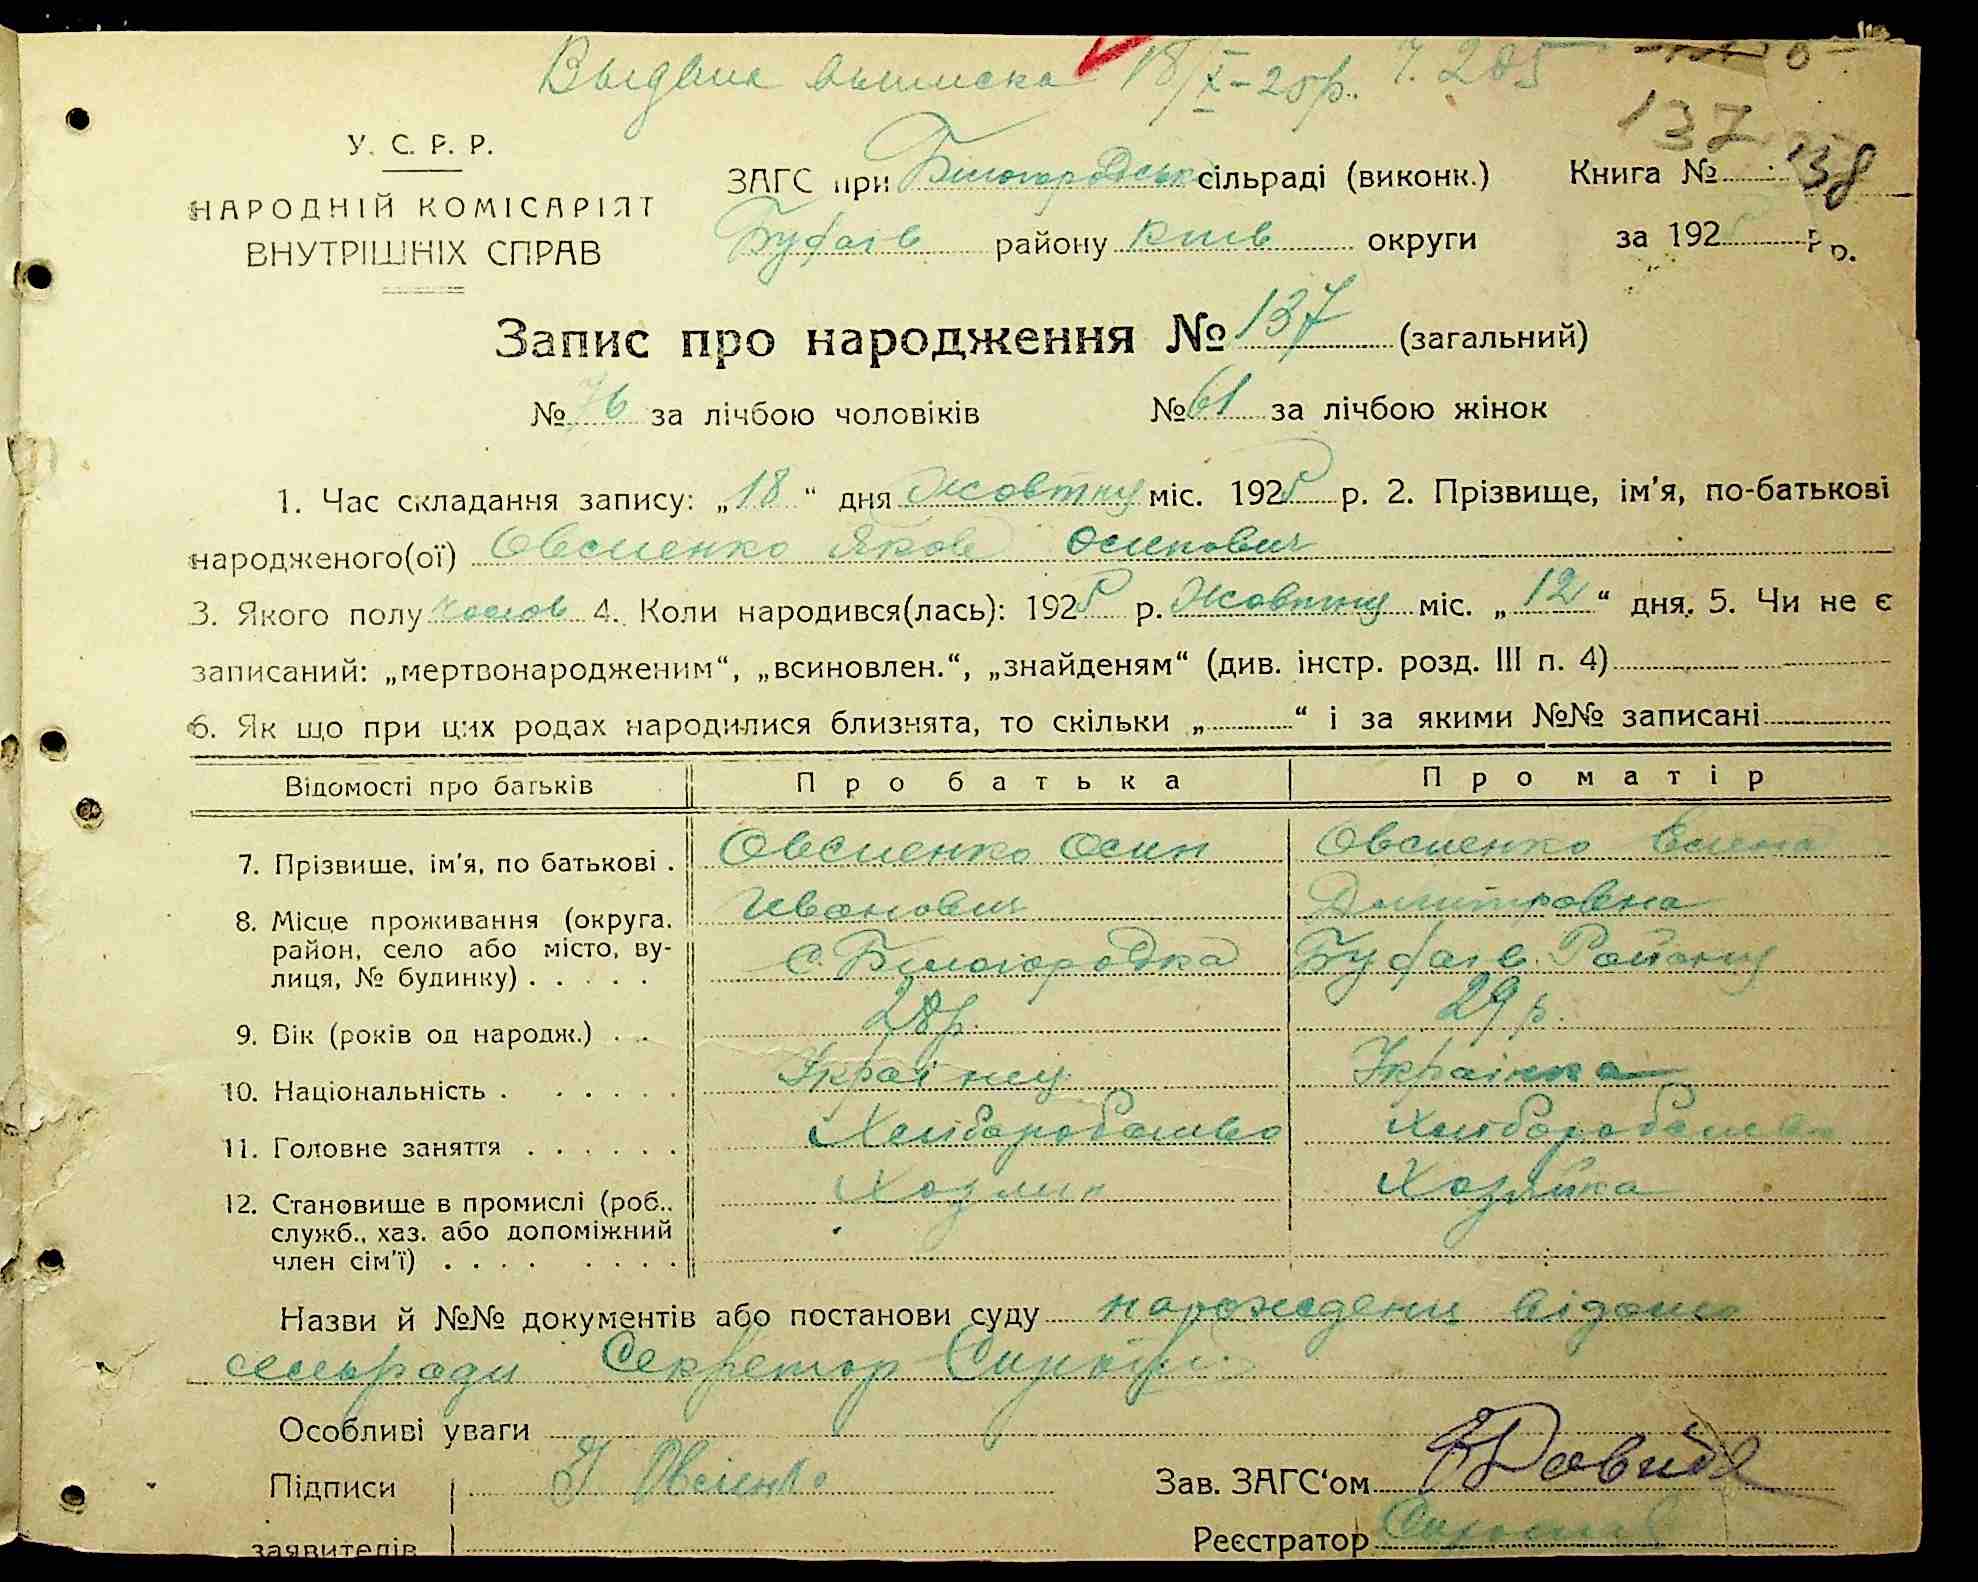 Выдана выписка 18/X-25р. Ч. 205
137
138
У. С. Р. Р.
НАРОДНІЙ КОМІСАРІЯТ
ВНУТРІШНІХ СПРАВ
ЗАГС при Білогородськ сільраді (виконк.) Книга №
Будаів району Київ округи за 192 р.
Запис про народження № 137 (загальний)
№ 76 за лічбою чоловіків № 61 за лічбою жінок
1. Час складання запису: „18“ дня Жовтня міс. 1925 р. 2. Прізвище, ім'я, по-батькові
народженого(ої) Овсиенко Яков Осипович
3. Якого полу 4. Коли народився(лась): 1925 р. Жовтня міс. „12“ дня. 5. Чи не є
записаний: „мертвонародженим“, „всиновлен.“, „знайденям“ (див. інстр. розд. III п. 4)
6. Як що при цих родах народилися близнята, то скільки „ “ і за якими №№ записані
Відомості про батьків Про батька Про матір
7. Прізвище, ім'я, по батькові . Овсиенко Осип Овсиенко Елена
Иванович Дмитровна
8. Місце проживання (округа,
район, село або місто, ву-
лиця, № будинку) . . . . . с. Білогородка Будаів. Району
9. Вік (років од народж.) . . 28р. 29р.
10. Національність . . . . . . Українец Українка
11. Головне заняття . . . . . . Хліборобство Хліборобство
12. Становище в промислі (роб.. Хозяин Хозяйка
служб., хаз. або допоміжний
член сім'ї) . . . . . . . .
Назви й №№ документів або постанови суду народжени відомо
сельради Секретар
Особливі уваги
Підписи Овсіенко Зав. ЗАГС'ом
заявителів Реєстратор